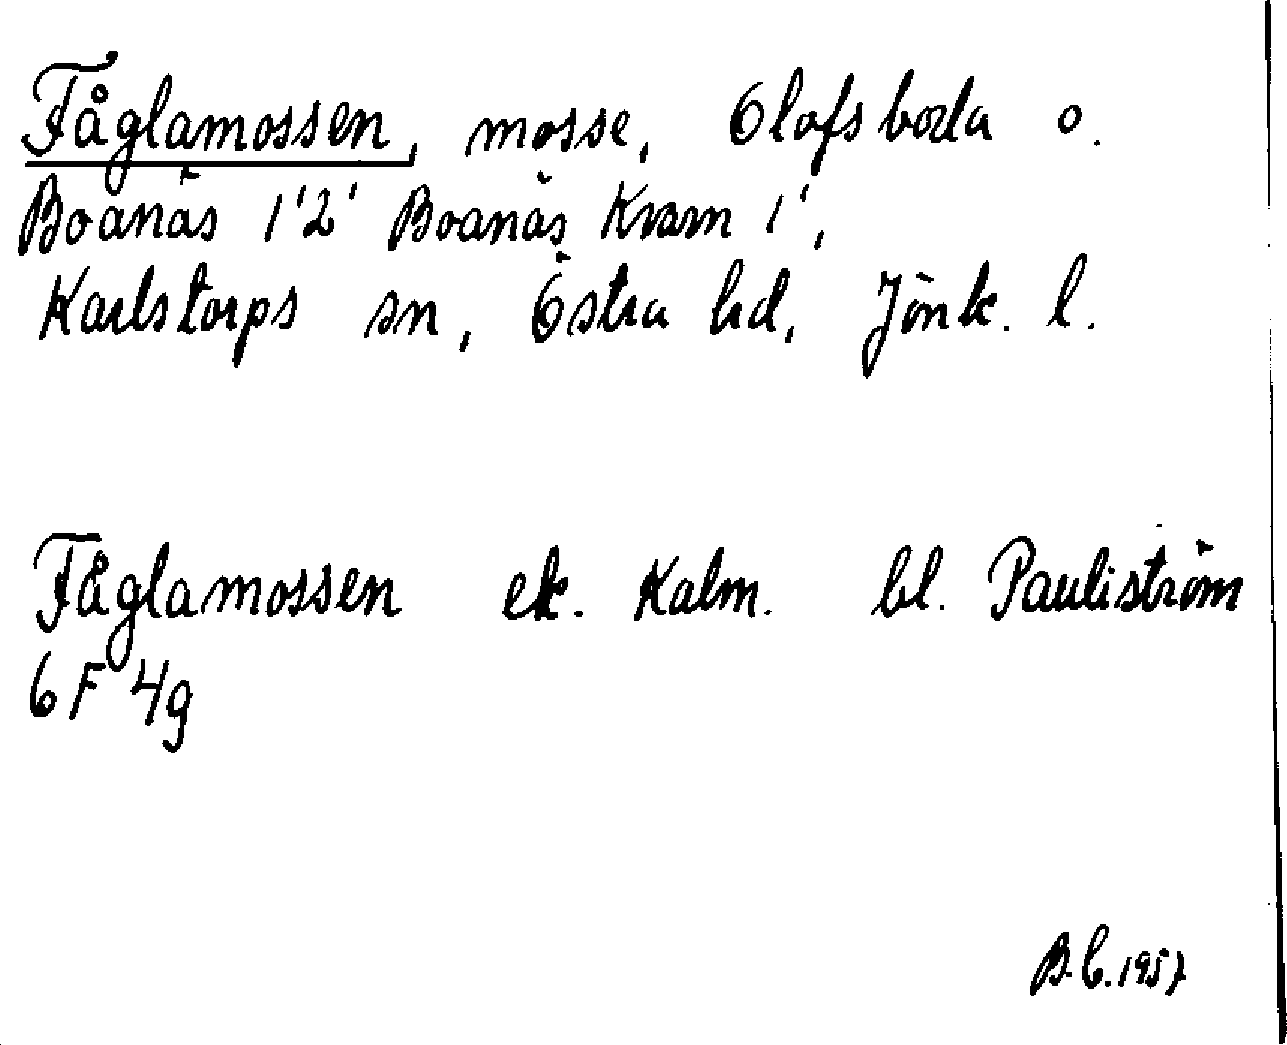 Fåglamossen, mosse, Olofsboda o.
Boanäs 1'2' Boanäs Kvarn 1',
Karlstorps sn, Östra hd, Jönk. l.
Fåglamossen ek. Kalm. bl. Pauliström
6 F 4g
B.C. 1957